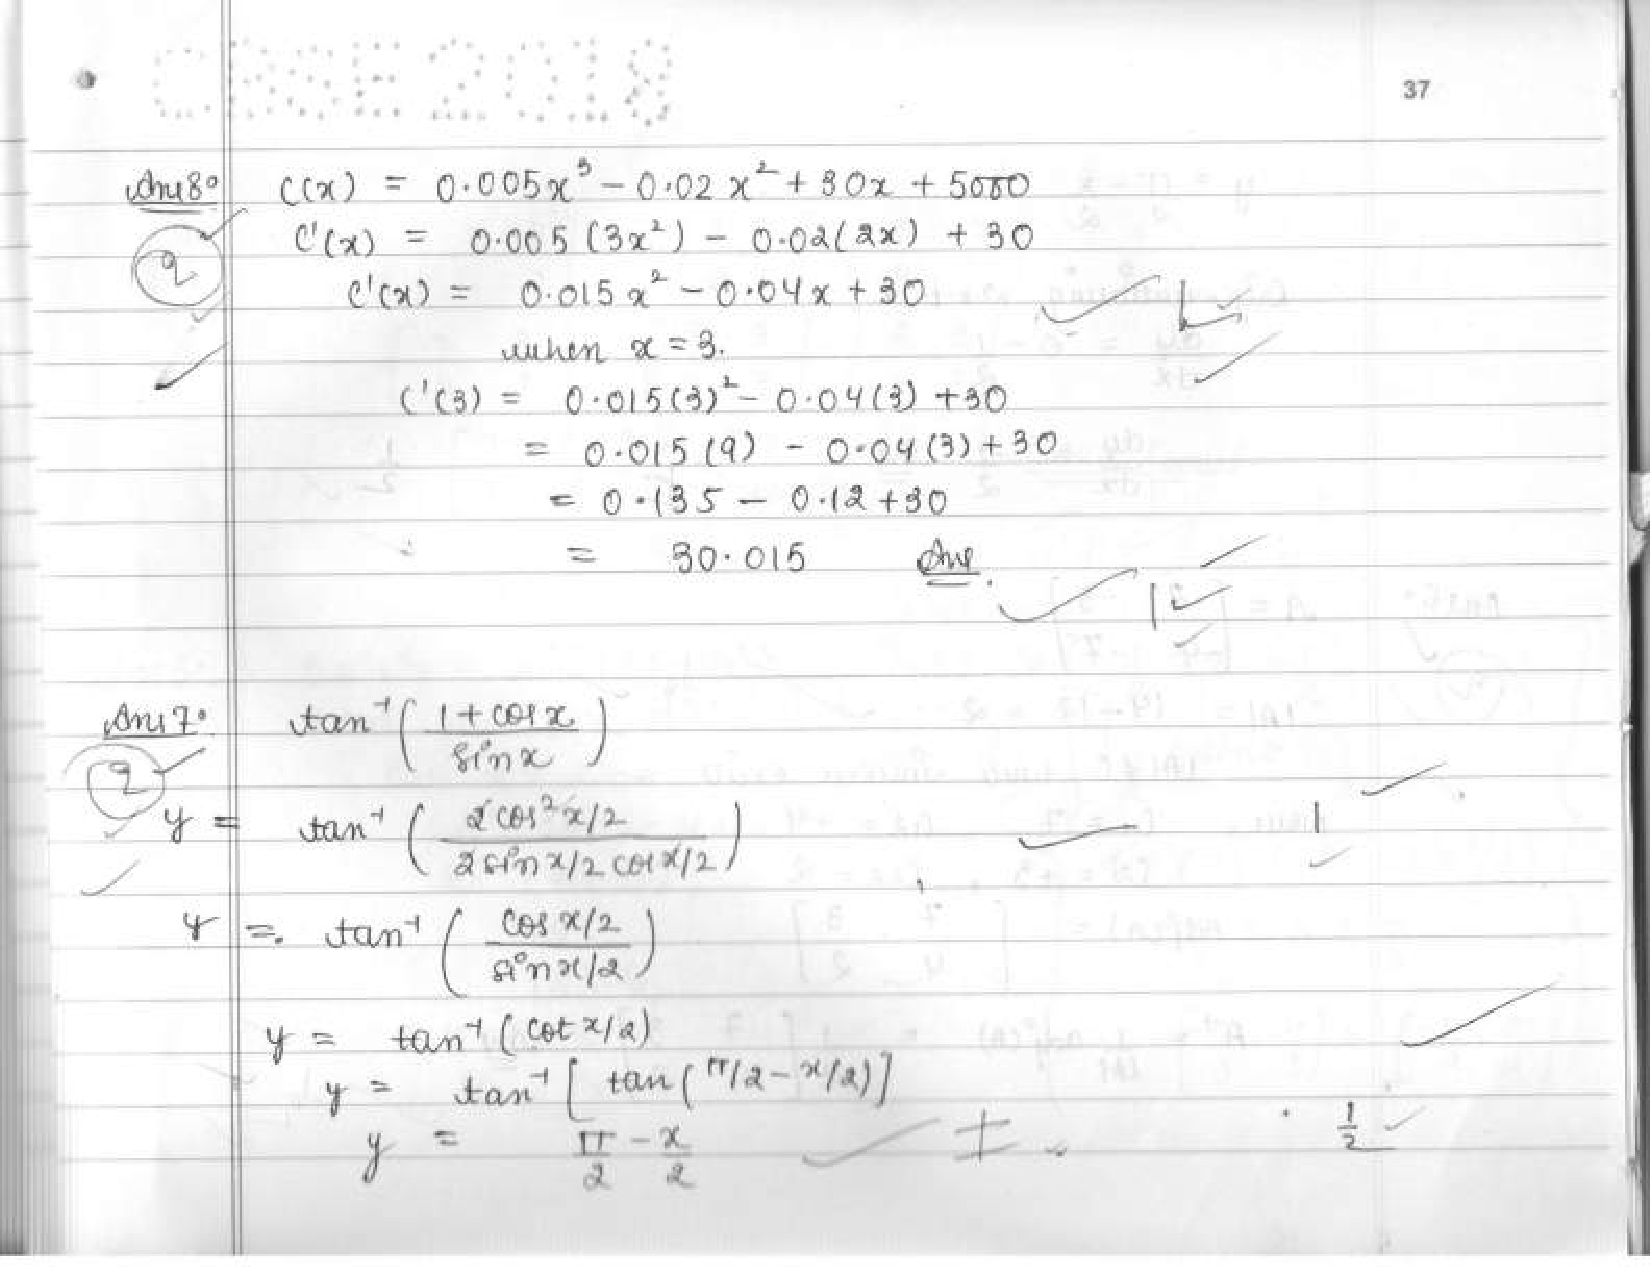 CBSE 2018
37
Ans 8. C(x) = 0.005x³ - 0.02x² + 30x + 5000
C'(x) = 0.005(3x²) - 0.02(2x) + 30
2
C'(x) = 0.015x² - 0.04x + 30
1
when x = 3.
C'(3) = 0.015(3)² - 0.04(3) + 30
= 0.015(9) - 0.04(3) + 30
= 0.135 - 0.12 + 30
= 30.015 Ans.
1
Ans 7. tan⁻¹((1 + cos x)/(sin x))
2
y = tan⁻¹((2cos² x/2)/(2 sin x/2 cos x/2))
1
y = tan⁻¹((cos x/2)/(sin x/2))
y = tan⁻¹(cot x/2)
y = tan⁻¹[tan(π/2 - x/2)]
y = π/2 - x/2
1/2